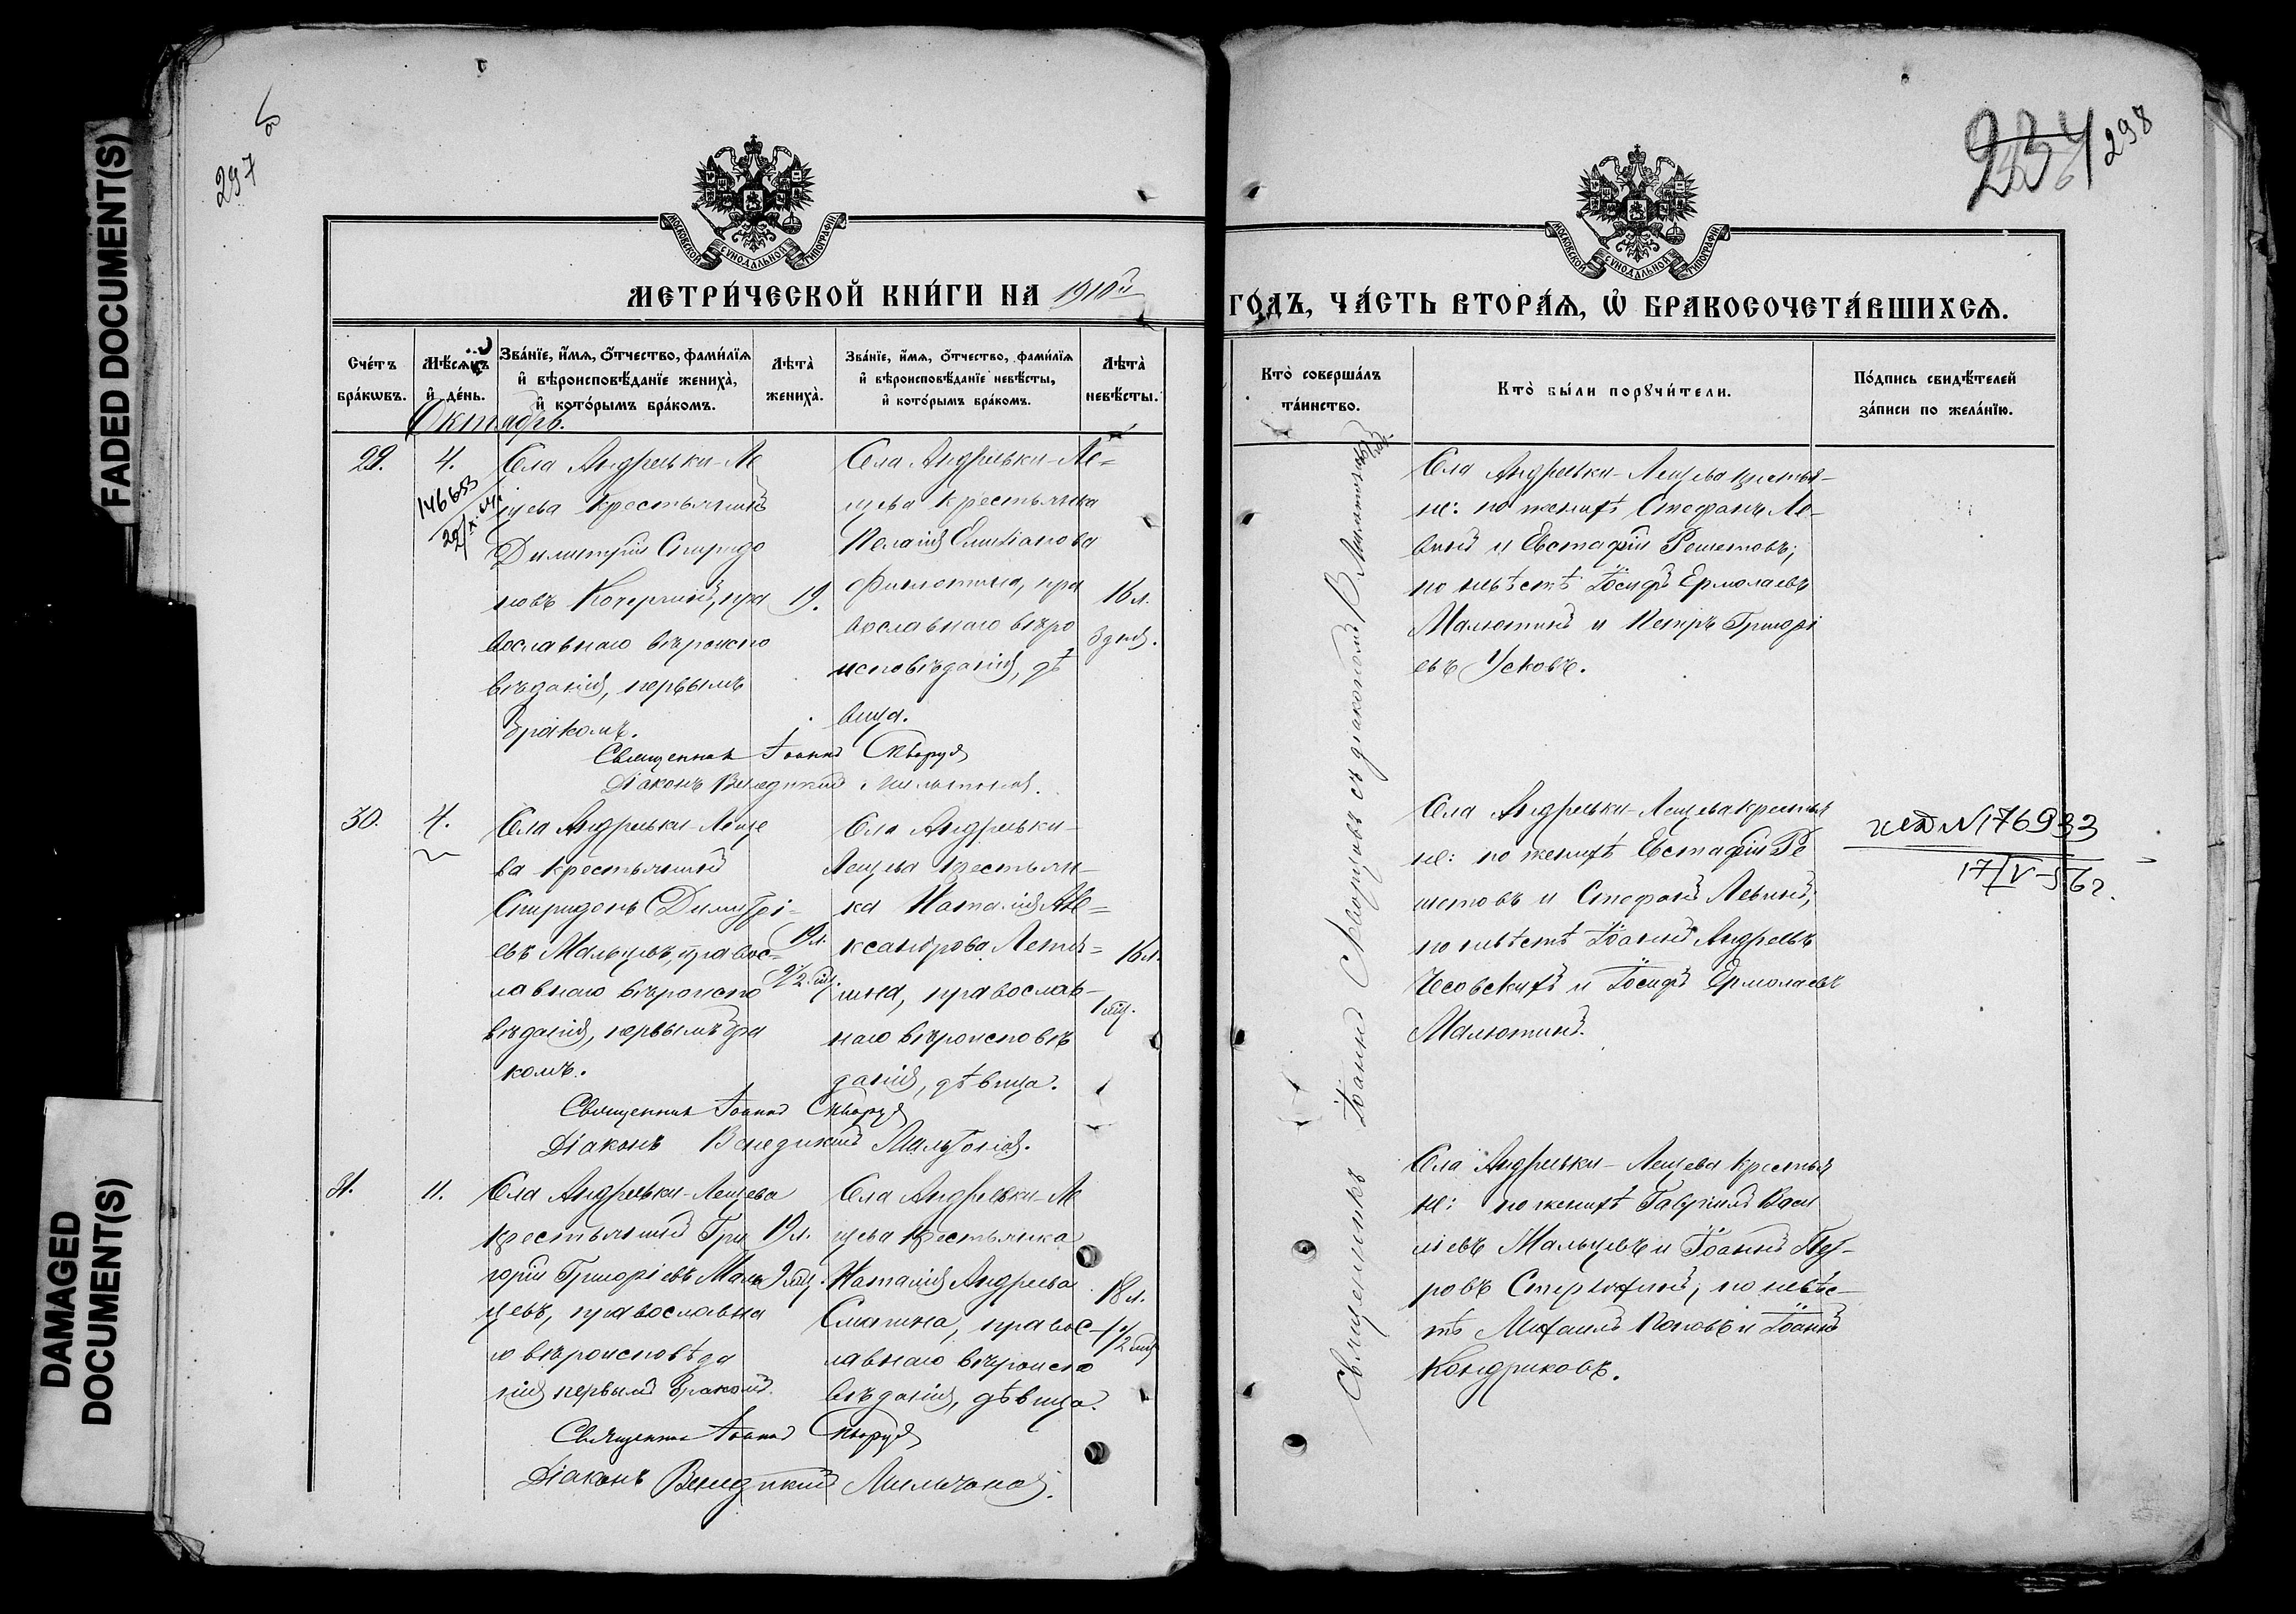 FADED DOCUMENT(S)
DAMAGED DOCUMENT(S)
297
об
МОСКОВСКОЙ СѴНОДАЛЬНОЙ ТИПОГРАФІИ
МЕТРИ́ЧЕСКОЙ КНИ́ГИ НА 1910й
Сче́тъ бра́кѡвъ.
Мѣ́сяцъ и҆ де́нь.
Зва́нїе, и҆́мѧ, ѻ҆́тчество, фами́лїѧ и҆ вѣроисповѣ́данїе жениха̀, и҆ кото́рымъ бра́комъ.
Лѣта̀ жениха̀.
Зва́нїе, и҆́мѧ, ѻ҆́тчество, фами́лїѧ и҆ вѣроисповѣ́данїе невѣ́сты, и҆ кото́рымъ бра́комъ.
Лѣта̀ невѣ́сты.
Октябрь.
29.
4.
146653
Села Андреевки-Ле
щева крестьянинъ
Димитрій Спиридо
новъ Кочергинъ, пра
вославнаго вѣроиспо
вѣданія, первымъ
бракомъ.
19.
Села Андреевки-Ле=
щева крестьянка
Пелагія Емиліанова
Филютина, пра
вославнаго вѣро
исповѣданія, дѣ
вица.
16 л.
3 дня.
Священникъ Іоаннъ Скворцовъ
Діаконъ Венедиктъ
30.
4.
Села Андреевки-Леще
ва крестьянинъ
Спиридонъ Димитрі=
евъ Мальцевъ, правос=
лавнаго вѣроиспо
вѣданія, первымъ бра
комъ.
19 л.
9½ мѣс.
Села Андреевки-
Лещева крестьян-
ка Наталія Але=
ксандрова Летя=
шна, православ-
наго вѣроисповѣ
данія, дѣвица.
16 л.
1 мѣс.
Священникъ Іоаннъ Скворцовъ
Діаконъ Венедиктъ
31.
11.
Села Андреевки-Лещева
крестьянинъ Гри
горій Григоріевъ Маль
цевъ, православна
го вѣроисповѣда
нія первымъ бракомъ.
19 л.
9 мѣс.
Села Андреевки-Ле
щева крестьянка
Наталія Андреева
Смыгина, правос-
лавнаго вѣроиспо
вѣданія, дѣвица.
18 л.
1½ мѣс
Священникъ Іоаннъ Скворцовъ
Діаконъ Венедиктъ
298
МОСКОВСКОЙ СѴНОДАЛЬНОЙ ТИПОГРАФІИ
ГО́ДЪ, ЧА́СТЬ ВТОРА́Ѧ, Ѽ БРАКОСОЧЕТА́ВШИХСѦ.
Кто̀ соверша́лъ та́инство.
Кто̀ бы́ли порꙋчи́тели.
По́дпись свидѣ́телей за́писи по жела́нїю.
Священникъ Іоаннъ Скворцовъ съ діакономъ В.
Села Андреевки-Лещева крестья-
не: по женихѣ Стефанъ Ле-
винъ и Евстафій Решетовъ;
по невѣстѣ Іосифъ Ермолаевъ
Малютинъ и Петръ Григорі
евъ Усковъ.
Села Андреевки-Лещева крестья
не: по женихѣ Евстафій Ре
шетовъ и Стефанъ Левинъ;
по невѣстѣ Іоаннъ Андреевъ
Чесовскихъ и Іосифъ Ермолаевъ
Малютинъ.
N 176933
17/IV-56 г.
Села Андреевки-Лещева крестья
не: по женихѣ Гавріилъ Васи
ліевъ Мальцевъ и Іоаннъ Пет-
ровъ Стерлюхинъ; по невѣс-
тѣ Михаилъ Поповъ и Іоаннъ
Кондриковъ.